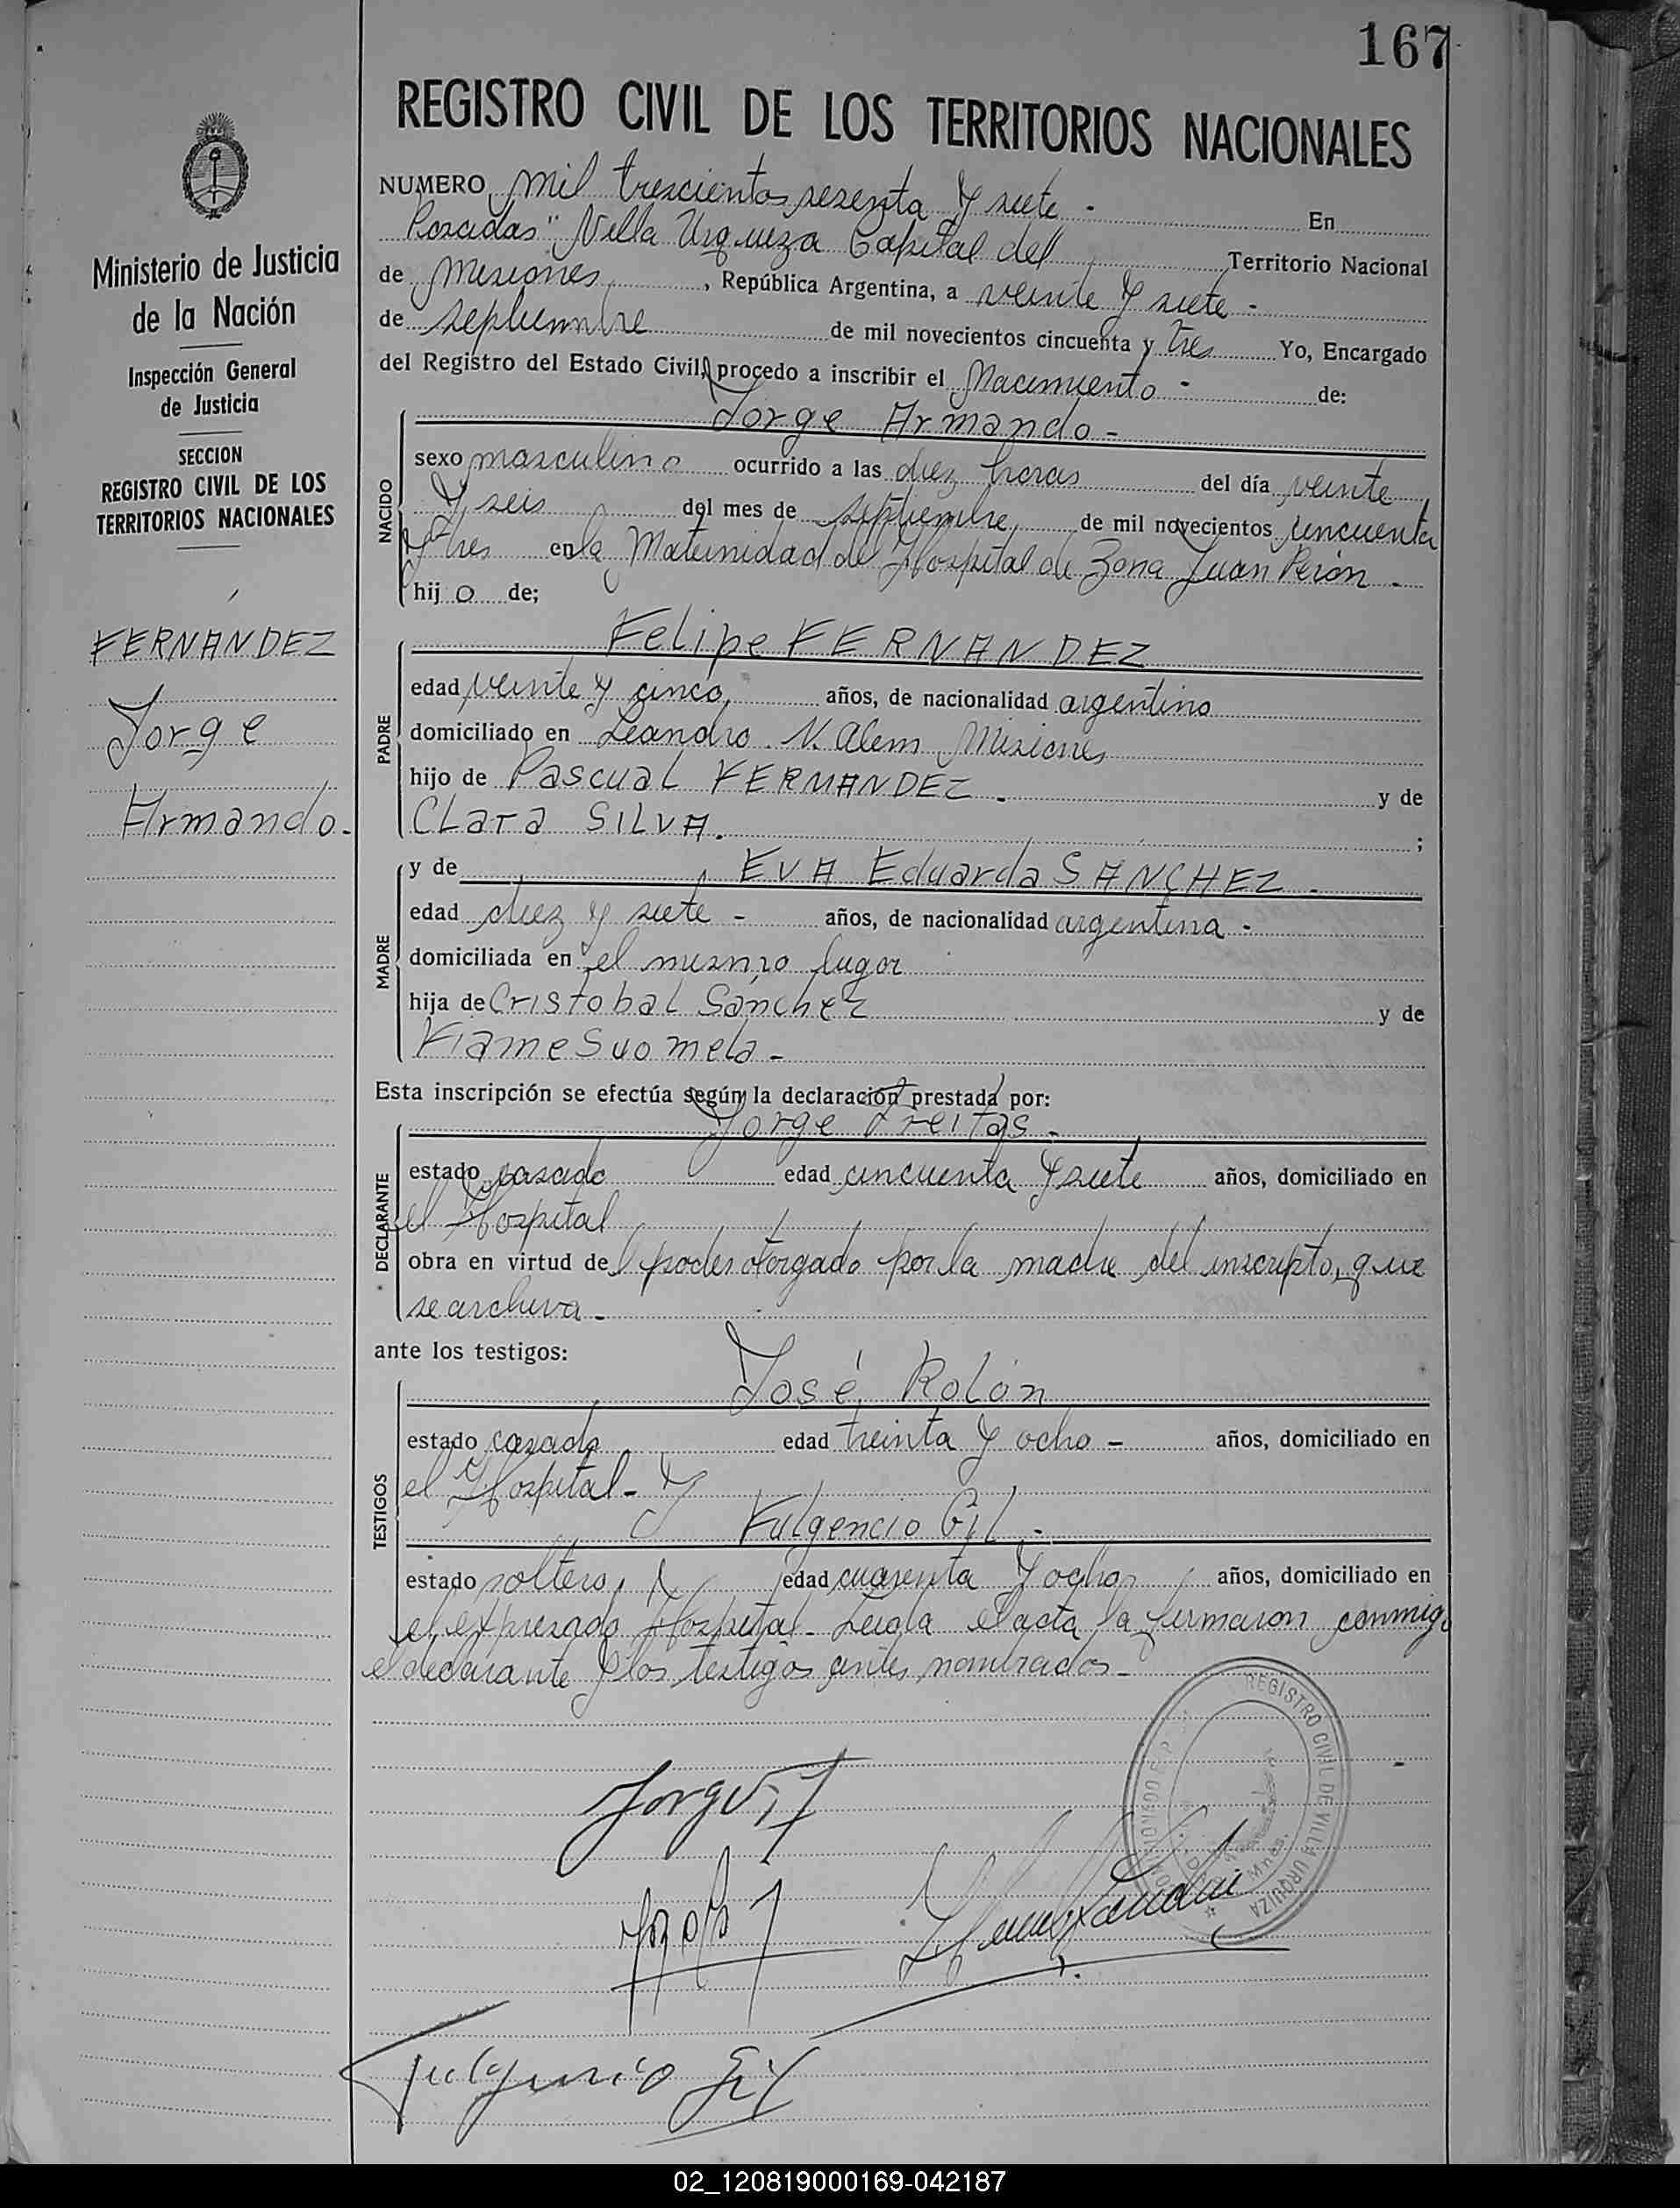 167
REGISTRO CIVIL DE LOS TERRITORIOS NACIONALES
Ministerio de Justicia
de la Nación
Inspección General
de Justicia
SECCION
REGISTRO CIVIL DE LOS
TERRITORIOS NACIONALES
FERNANDEZ
Jorge
Armando.
NUMERO mil trescientos sesenta y siete - En
Posadas" Villa Urquiza Capital del Territorio Nacional
de Misiones, República Argentina, a veinte y siete -
de septiembre de mil novecientos cincuenta y tres Yo, Encargado
del Registro del Estado Civil, procedo a inscribir el Nacimiento - de:
Jorge Armando -
NACIDO
sexo masculino ocurrido a las diez horas del día veinte
y seis del mes de septiembre, de mil novecientos cincuenta
y tres en la Maternidad del Hospital de Zona Juan Perón -
hijo de;
Felipe FERNANDEZ
PADRE
edad veinte y cinco, años, de nacionalidad argentino
domiciliado en Leandro N. Alem Misiones
hijo de Pascual FERNANDEZ - y de
Clara SILVA. ;
y de EVA Eduarda SANCHEZ -
MADRE
edad diez y siete - años, de nacionalidad argentina -
domiciliada en el mismo lugar
hija de Cristobal Sánchez y de
Suomela -
Esta inscripción se efectúa según la declaración prestada por:
Jorge Freitas -
DECLARANTE
estado casado edad cincuenta y siete años, domiciliado en
el Hospital
obra en virtud del poder otorgado por la madre del inscripto, que
se archiva -
ante los testigos:
José Rolón
TESTIGOS
estado casado edad treinta y ocho - años, domiciliado en
el Hospital - y
Fulgencio Gil -
estado soltero, edad cuarenta y ocho, años, domiciliado en
el expresado Hospital - Leida el acta la firmaron conmigo
el declarante y los testigos antes nombrados -
REGISTRO CIVIL DE VILLA URQUIZA
Mnes.
Fulgencio Gil
02_120819000169-042187